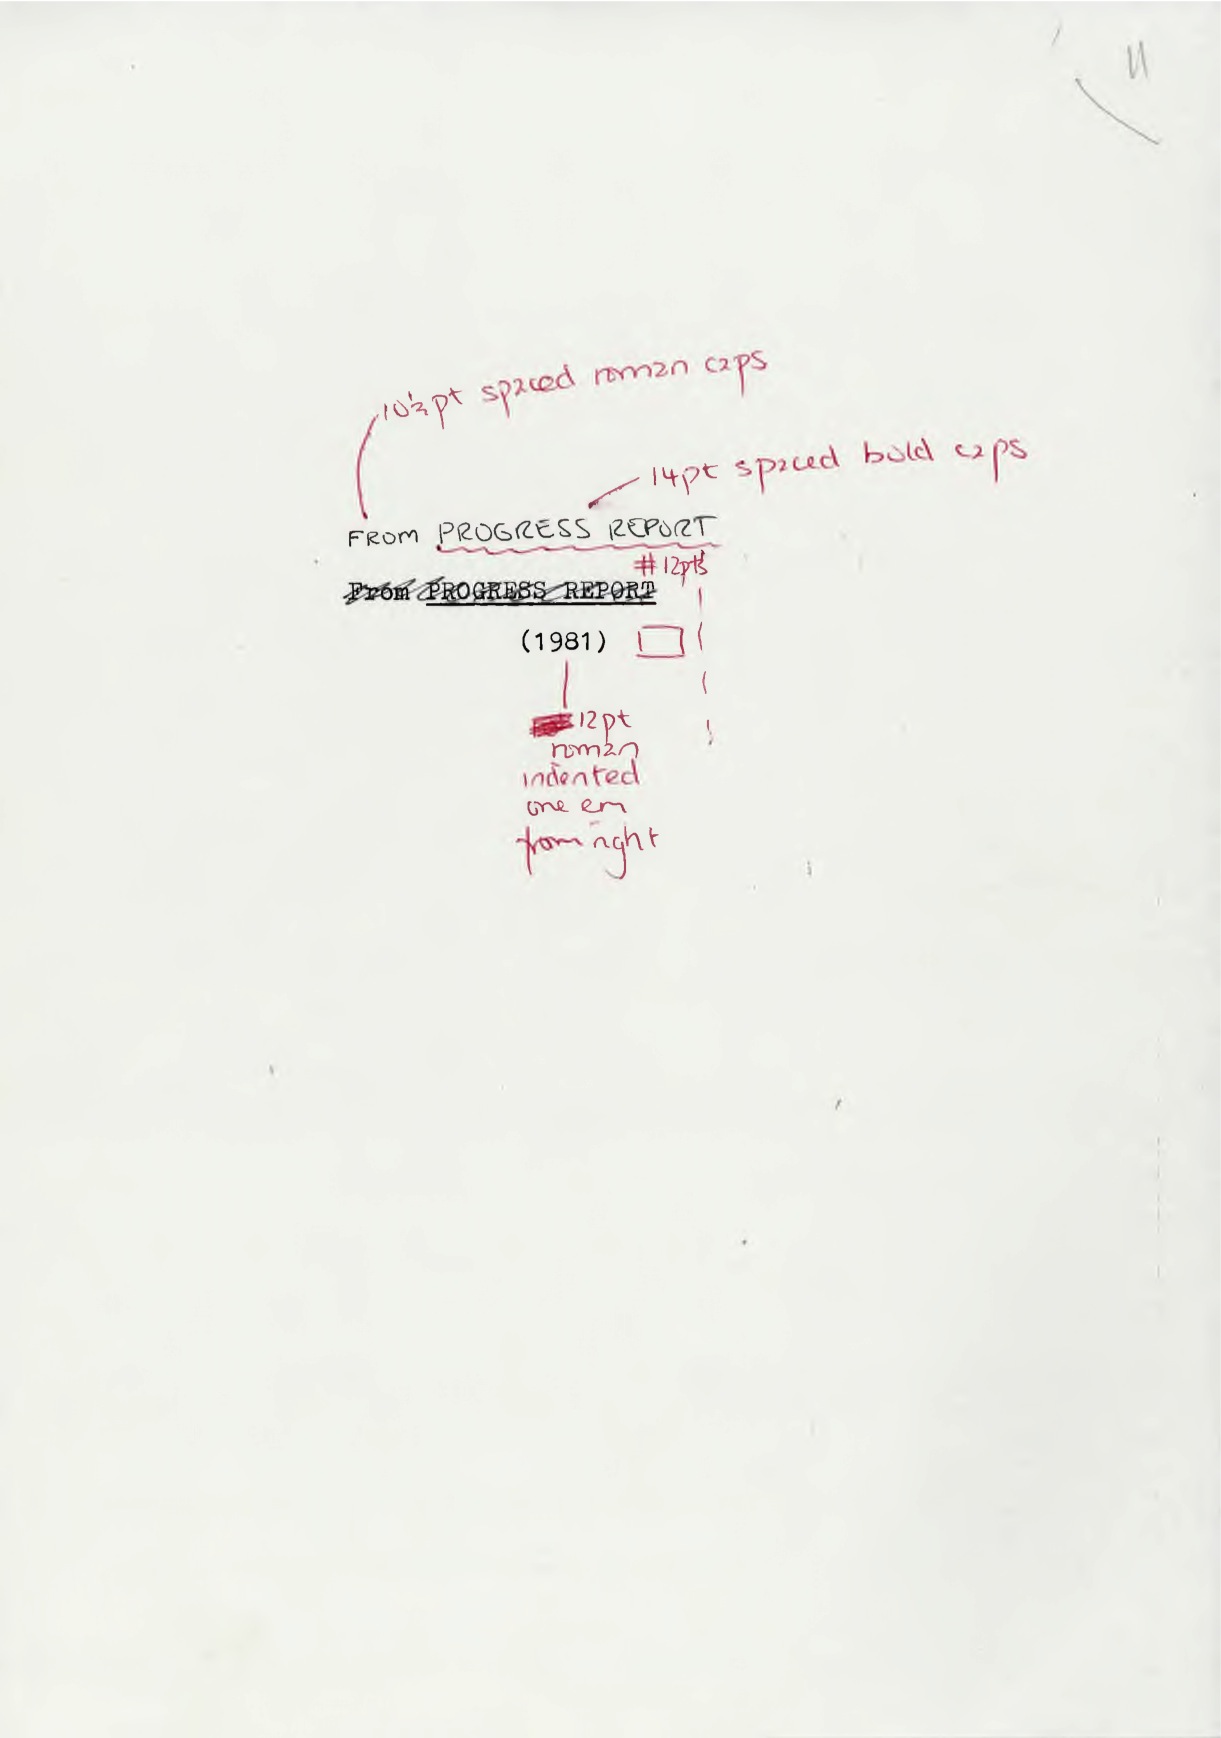 11
10½pt spaced roman caps
14pt spaced bold caps
FROM PROGRESS REPORT
# 12pts
From PROGRESS REPORT
(1981)
12pt
roman
indented
one em
from right